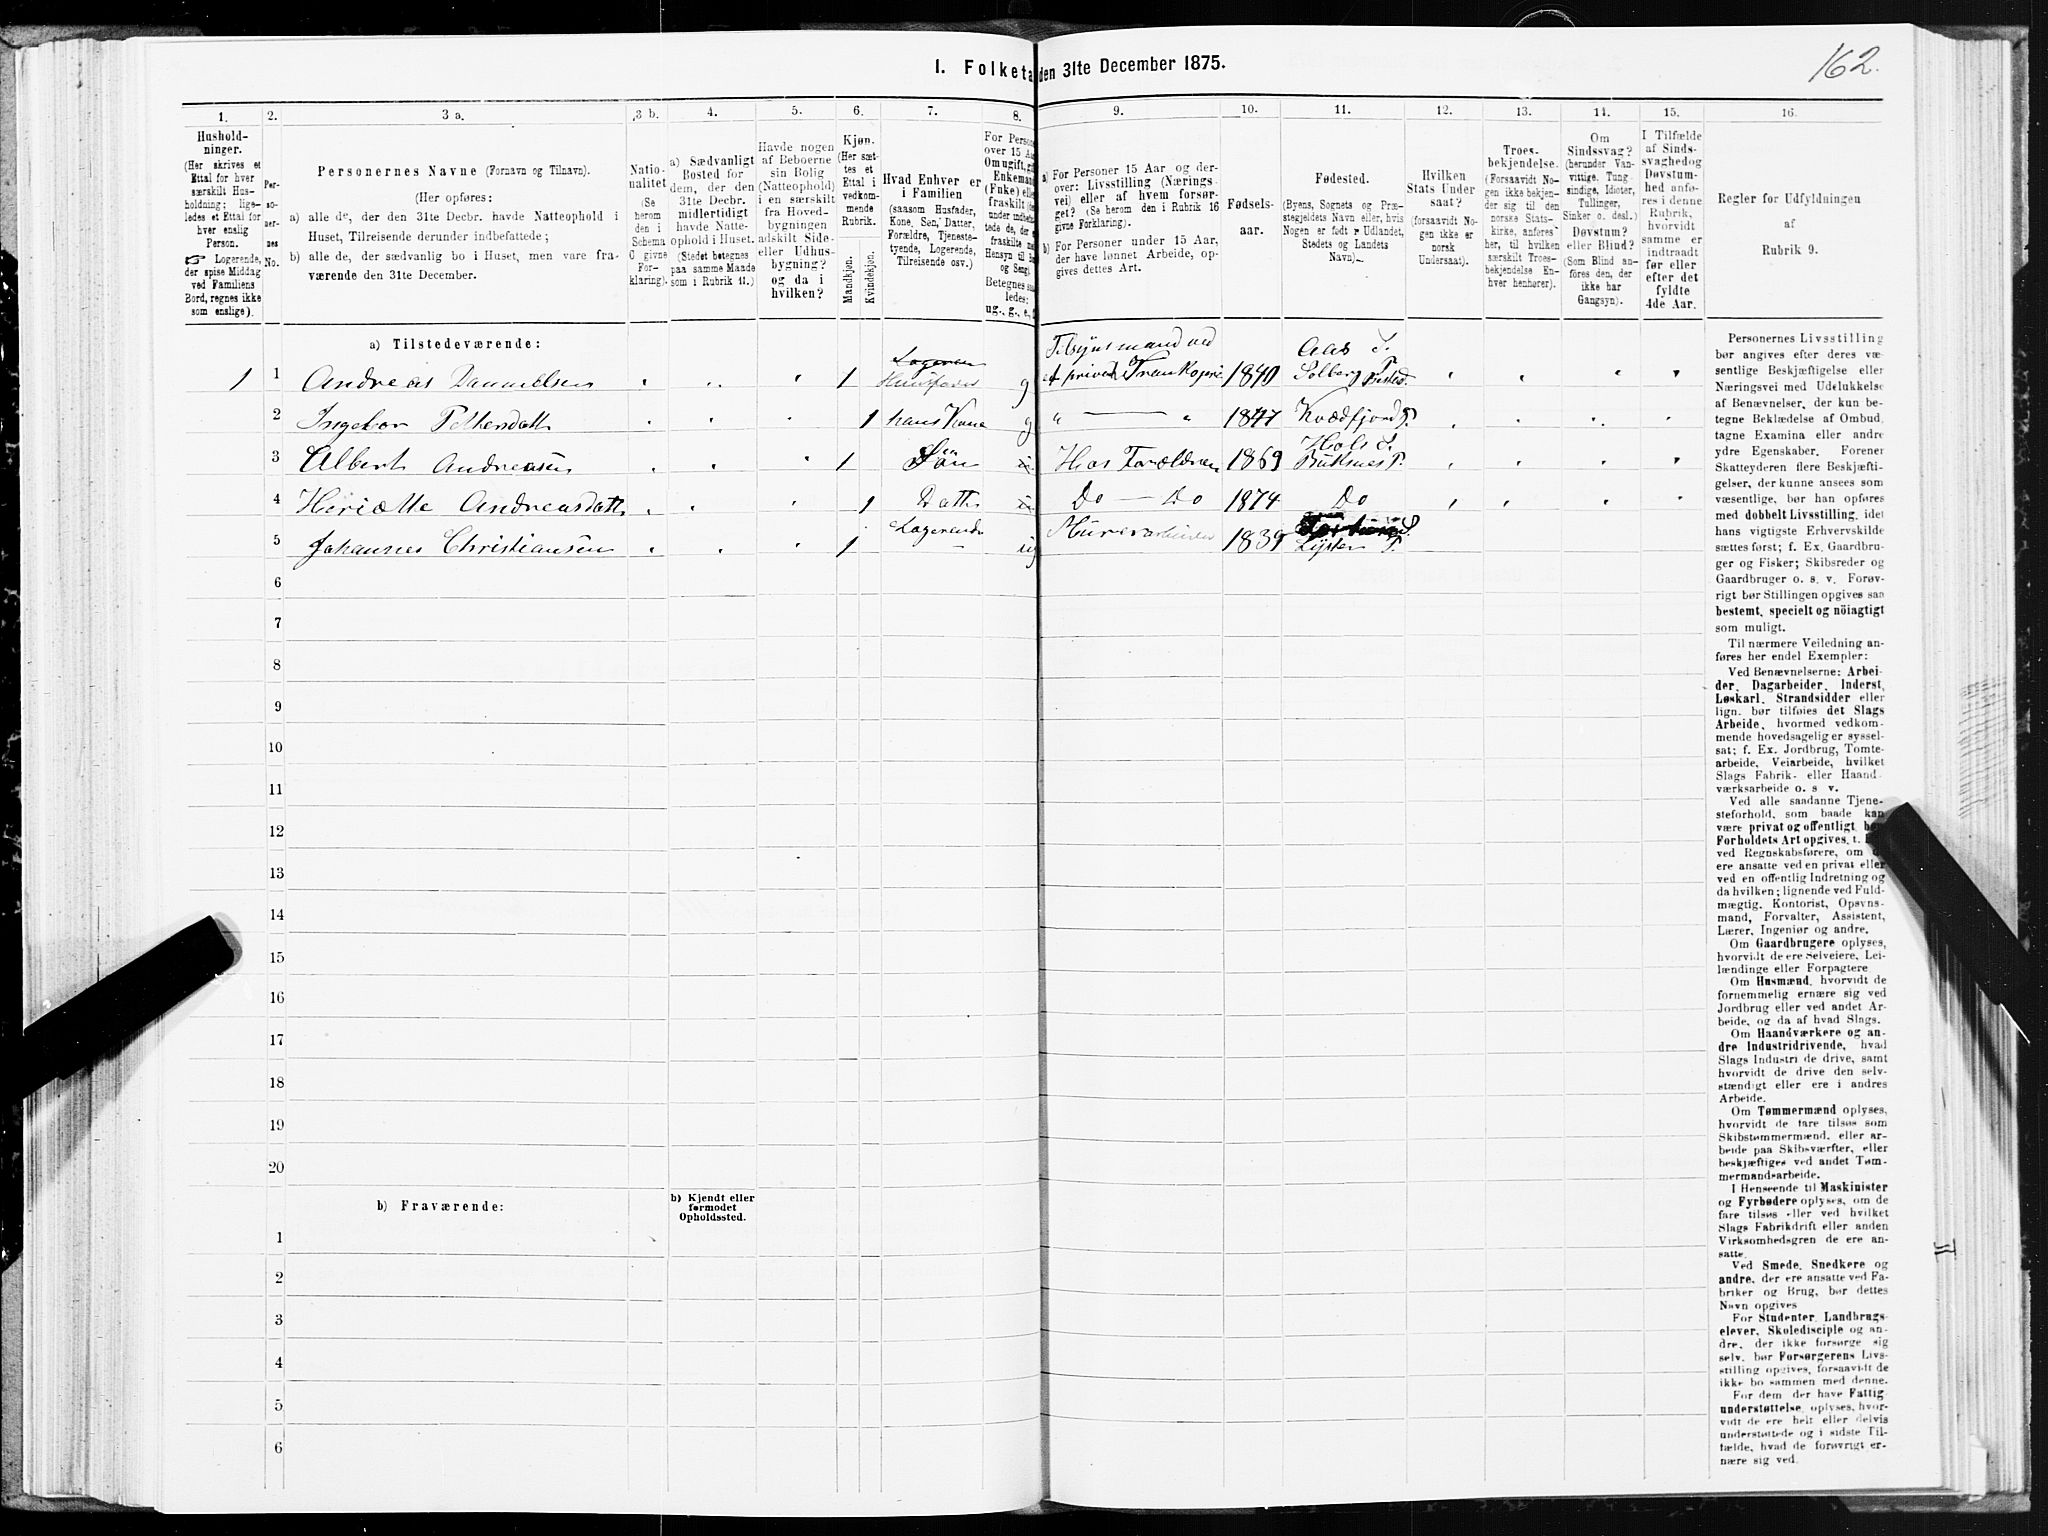 162.
I. Folketa
den 31te December 1875.
1.
2.
3 a.
3 b.
4.
5.
6.
7.
8.
9.
10.
11.
12.
13.
14.
15.
16.
Hushold-
ninger.
(Her skrives et
Ettal for hver
særskilt Hus-
holdning; lige-
ledes et Ettal for
hver enslig
Person.
☞ Logerende,
der spise Middag
ved Familiens
Bord, regnes ikke
som enslige).
Per-
so-
ner-
nes
No.
Personernes Navne (Fornavn og Tilnavn).
(Her opføres:
a) alle de, der den 31te Decbr. havde Natteophold i
Huset, Tilreisende derunder indbefattede;
b) alle de, der sædvanlig bo i Huset, men vare fra-
værende den 31te December.
Natio-
nalitet
(Se
herom
den i
Schema
C givne
For-
klaring).
a) Sædvanligt
Bosted for
dem, der den
31te Decbr.
midlertidigt
havde Natte-
ophold i Huset.
(Stedet betegnes
paa samme Maade
som i Rubrik 11.)
Havde nogen
af Beboerne
sin Bolig
(Natteophold)
i en særskilt
fra Hoved-
bygningen
adskilt Side-
eller Udhus-
bygning?
og da i
hvilken?
Kjøn.
(Her sæt-
tes et
Ettal i
vedkom-
mende
Rubrik.
Mandkjøn.
Kvindekjøn.
Hvad Enhver er
i Familien
(saasom Husfader,
Kone, Søn, Datter,
Forældre, Tjeneste-
tyende, Logerende,
Tilreisende osv.)
For Person
over 15 Aa
Omugift, gif
Enkemand
(Fuke) elle
fraskilt
Betegnes saa
ledes:
ug., g., e.,
a) For Personer 15 Aar og der-
over: Livsstilling (Nærings-
vei) eller af hvem forsør-
get? (Se herom den i Rubrik 16
givne Forklaring).
b) For Personer under 15 Aar,
der have lønnet Arbeide, op-
gives dettes Art.
Fødsels-
aar.
Fødested.
(Byens, Sognets og Præ-
stegjeldets Navn eller, hvis
Nogen er født i Udlandet,
Stedets og Landets
Navn).
Hvilken
Stats Under
saat?
(forsaavidt No-
gen ikke er
norsk
Undersaat).
Troes-
bekjendelse.
(Forsaavidt No-
gen ikke bekjen-
der sig til den
norske Stats-
kirke, anføres
her, til hvilken
særskilt Troes-
bekjendelse En-
hver henhører).
Om
Sindssvag?
(herunder Van-
vittige, Tung
sindige, Idioter,
Tullinger,
Sinker o. desl.)
Døvstum?
eller Blind?
(Som Blind an-
føres den, der
ikke har
Gangsyn).
I Tilfælde
af Sinds-
svaghedog
Døvstum-
hed anfø-
res i denne
Rubrik,
hvorvidt
samme er
indtraadt
før eller
efter det
fyldte
4de Aar.
Regler for Udfyldningen
af
Rubrik 9.
a) Tilstedeværende:
1 1 Andreas Danielsen 1 Husfader g Tilsynsmand ved et privat 1840 Aas S. Solberg
2 Ingebor Pettersdatt 1 hans Kone g " — " 1847 Kvædfjord P.
3 Albert Andreasen 1 Søn Hos Forældrene 1869 Hols S. Buksnes P.
4 Heriette Andreasdatt 1 Datt Do — Do 1874 Do
5 Johannes Christiansen 1 Logerende ug Murerarbeider 1839 Lyster P.
6
7
8
9
10
11
12
13
14
15
16
17
18
19
20
b) Fraværende:
b) Kjendt eller
formodet
Opholdssted.
1
2
3
4
5
6
Personernes Livsstilling
bør angives efter deres væ-
sentlige Beskjæftigelse eller
Næringsvei med Udelukkelse
af Benævnelser, der kun be-
tegne Beklædelse af Ombud,
tagne Examina eller andre
ydre Egenskaber. Forener
Skatteyderen flere Beskjæfti-
gelser, der kunne ansees som
væsentlige, bør han opføres
med dobbelt Livsstilling, idet
hans vigtigste Erhvervskilde
sættes først; f. Ex. Gaardbru-
ger og Fisker; Skibsreder og
Gaardbruger o. s. v. Forøv-
rigt bør Stillingen opgives saa
bestemt, specielt og nöiagtigt
som muligt.
Til nærmere Veiledning an-
føres her endel Exempler:
Ved Benævnelserne: Arbei-
der, Dagarbeider, Inderst,
Løskarl, Strandsidder eller
lign. bør tilføies det Slags
Arbeide, hvormed vedkom-
mende hovedsagelig er syssel-
sat; f. Ex. Jordbrug, Tomte-
arbeide, Veiarbeide, hvilket
Slags Fabrik- eller Haand-
værksarbeide o. s v.
Ved alle saadanne Tjene-
steforhold, som baade kan
være privat og offentligt, bør
Forholdets Art opgives, t.
ved Regnskabsførere, om
ere ansatte ved en privat eller
ved en offentlig Indretning og
da hvilken; lignende ved Fuld-
mægtig, Kontorist, Opsyns-
mand, Forvalter, Assistent,
Lærer, Ingeniør og andre.
Om Gaardbrugere oplyses,
hvorvidt de ere Selveiere, Lei-
lændinge eller Forpagtere
Om Husmænd, hvorvidt de
fornemmelig ernære sig ved
Jordbrug eller ved andet Ar-
beide, og da af hvad Slags.
Om Haandværkere og an-
dre Industridrivende, hvad
Slags Industri de drive, samt
hvorvidt de drive den selv-
stændigt eller ere i andres
Arbeide.
Om Tømmermænd oplyses,
hvorvidt de fare tilsøs som
Skibstømmermænd, eller ar-
beide paa Skibsværfter, eller
beskjæftiges ved andet Tøm-
mermandsarbeide.
I Henseende til Maskinister
og Fyrbødere oplyses, om de
fare tilsøs eller ved hvilket
Slags Fabrikdrift eller anden
Virksomhedsgren de ere an-
satte.
Ved Smede, Snedkere og
andre, der ere ansatte ved Fa-
briker og Brug, bør dettes
Navn opgives
For Studenter, Landbrugs-
elever, Skoledisciple og an-
dre, der ikke forsørge sig
selv, bør Forsørgerens Livs-
stilling opgives, forsaavidt de
ikke bo sammen med denne.
For dem, der have Fattig-
understøttelse, oplyses, hvor-
vidt de ere helt eller delvis
understøttede og i sidste Til-
fælde, hvad de forøvrigt er-
nære sig ved.